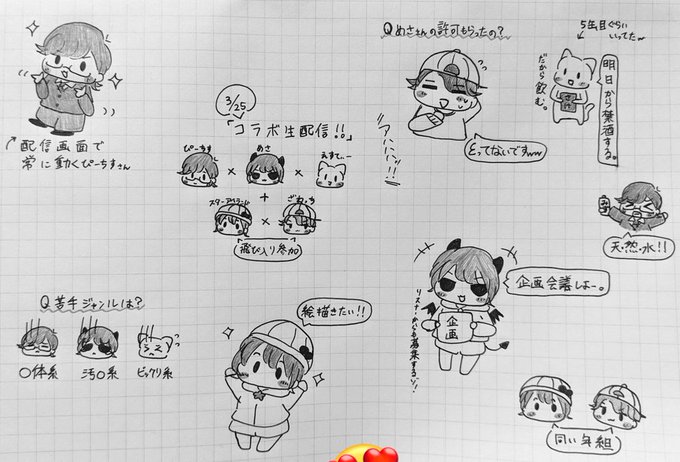 ↑配信画面で
常に動くぴーちすさん
3/25
「コラボ生配信!!」
ぴーちす
×
めさ
×
えすてぃー
+
スターアイランド
×
ざわっち
飛び入り参加
Qめささんの許可もらったの?
アハハッ!!
とってないですww
5缶目ぐらい
いってたw
明日から禁酒する。
だから飲む。
天・然・水!!
企画会議しよー。
企画
リスナーからも募集するゾ!
Q苦手ジャンルは?
〇体系
汚〇系
ビックリ系
絵描きたい!!
同い年組